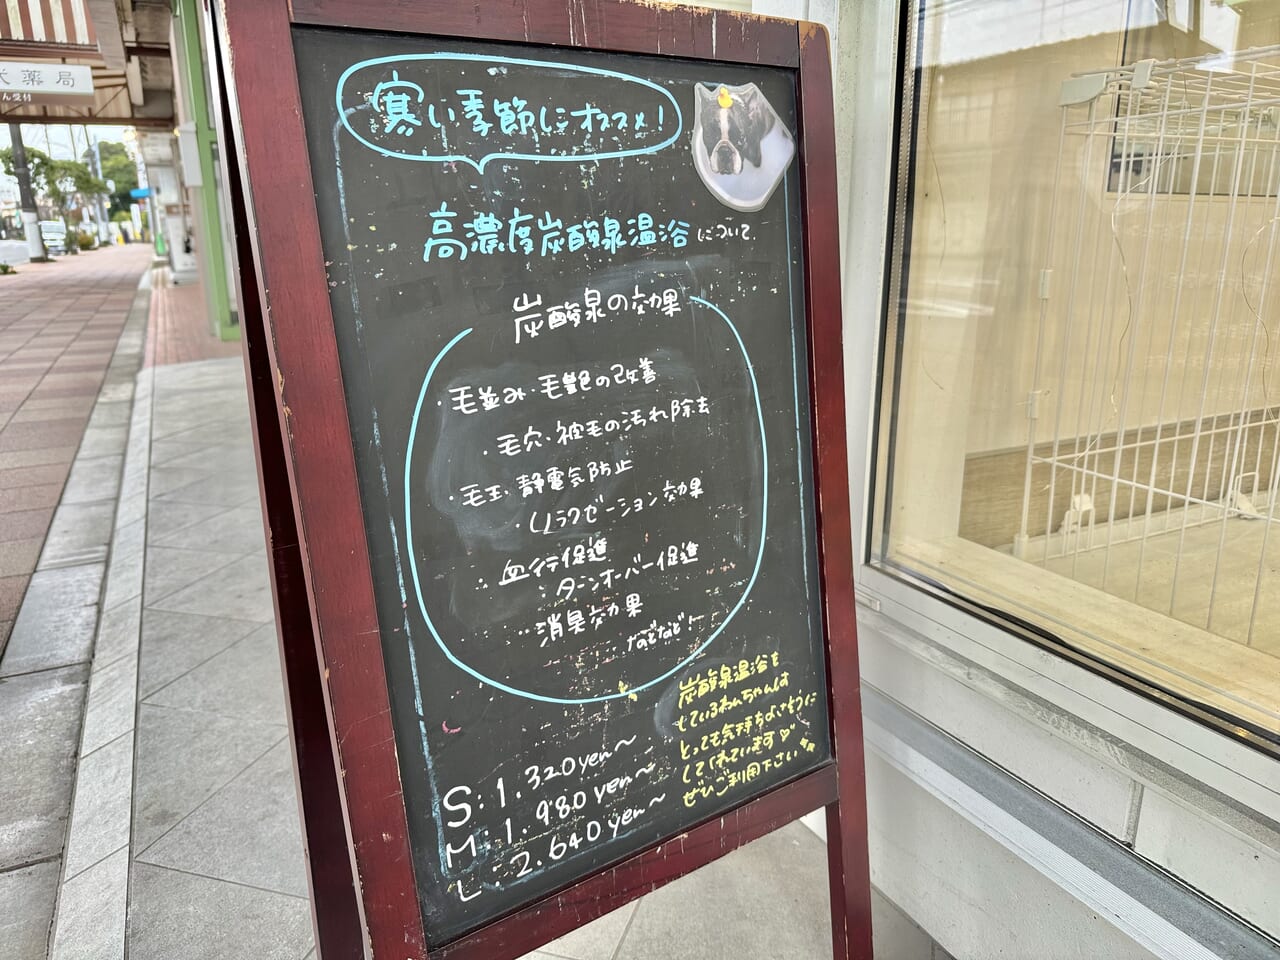 薬局
寒い季節にオススメ!
高濃度炭酸泉温浴について.
炭酸泉の効果
・毛並み・毛艶の改善
・毛穴・被毛の汚れ除去
・毛玉・静電気防止
・リラクゼーション効果
・血行促進
・ターンオーバー促進
・消臭効果
などなど!
炭酸泉温浴を
しているわんちゃんは
とっても気持ちよさそうに
してくれています♡
ぜひご利用下さい
S:1.320yen〜
M:1.980yen〜
L:2.640yen〜